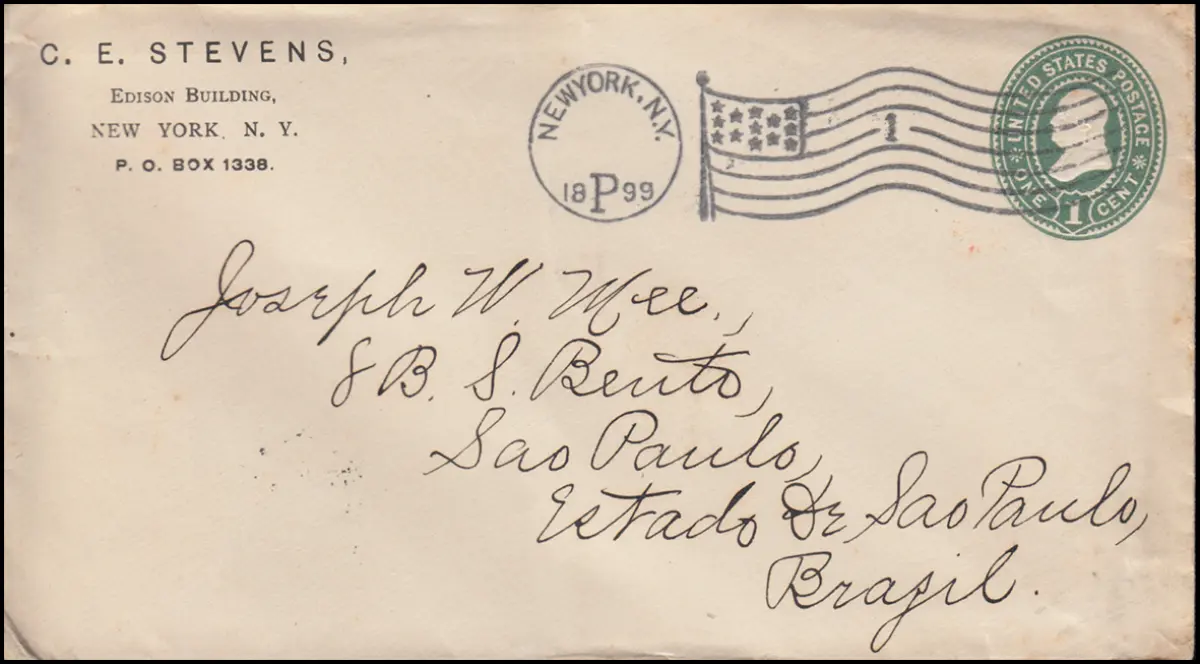 C. E. STEVENS,
EDISON BUILDING,
NEW YORK, N. Y.
P. O. BOX 1338.
NEW YORK, N.Y.
18 P 99
1
UNITED STATES POSTAGE
ONE 1 CENT
Joseph W. Mee.,
8 B. S. Bento,
Sao Paulo,
Estado De Sao Paulo,
Brazil.